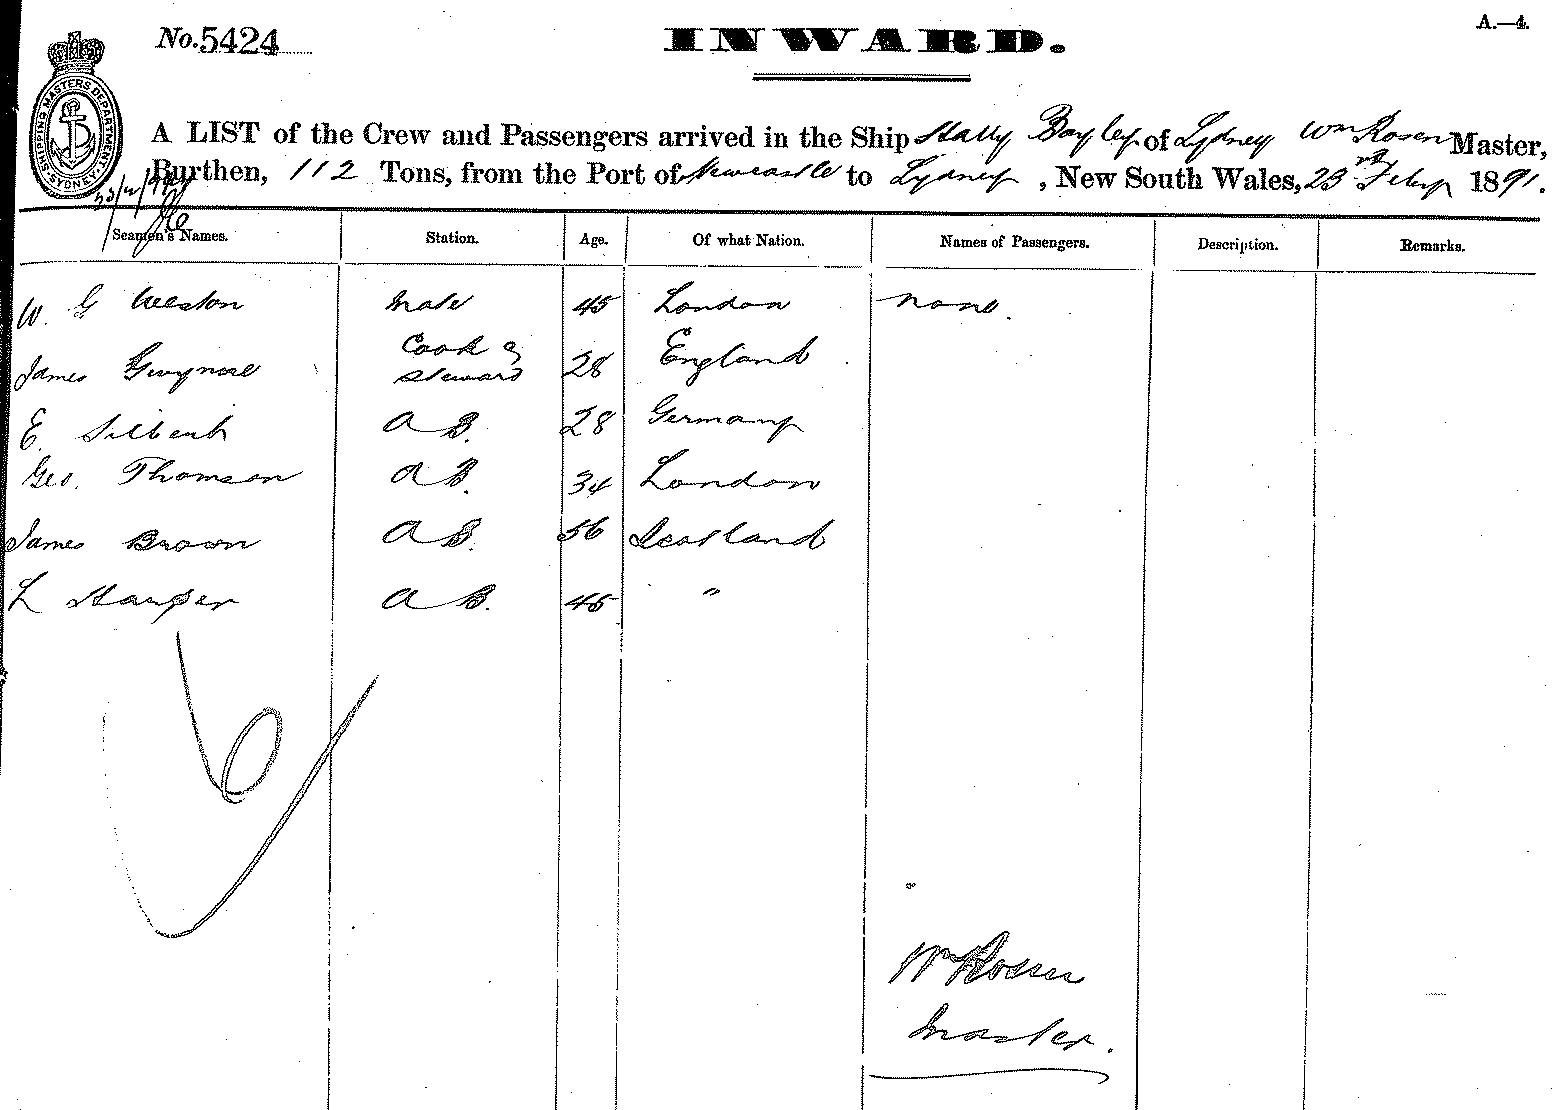 No. 5424
INWARD.
A.—4.
SHIPPING MASTERS DEPARTMENT SYDNEY
A LIST of the Crew and Passengers arrived in the Ship Hally Bayley of Sydney Wm Rosen Master,
Burthen, 112 Tons, from the Port of Newcastle to Sydney, New South Wales, 23rd Feby 1891.
Seamen's Names. Station. Age. Of what Nation. Names of Passengers. Description. Remarks.
W. G Weston Mate 45 London none.
James Gwynne Cook & Steward 28 England
E. A B. 28 Germany
Geo. Thomson A B. 34 London
James Brown A B. 56 Scotland
L Harper A B. 45 "
6
Wm Rosser
Master.